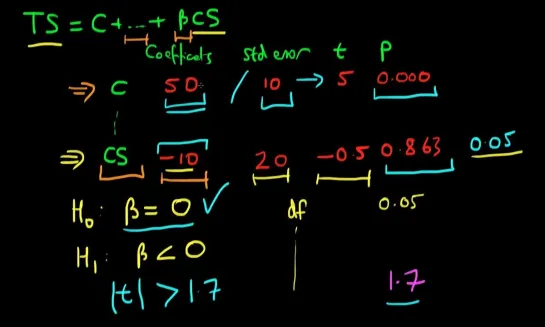 TS = C + ... + βCS
Coefficats std error t p
⇒ C 50 / 10 → 5 0.000
⇒ CS -10 20 -0.5 0.863 0.05
H₀: β = 0 ✓ df 0.05
H₁: β < 0
|t| > 1.7 1.7